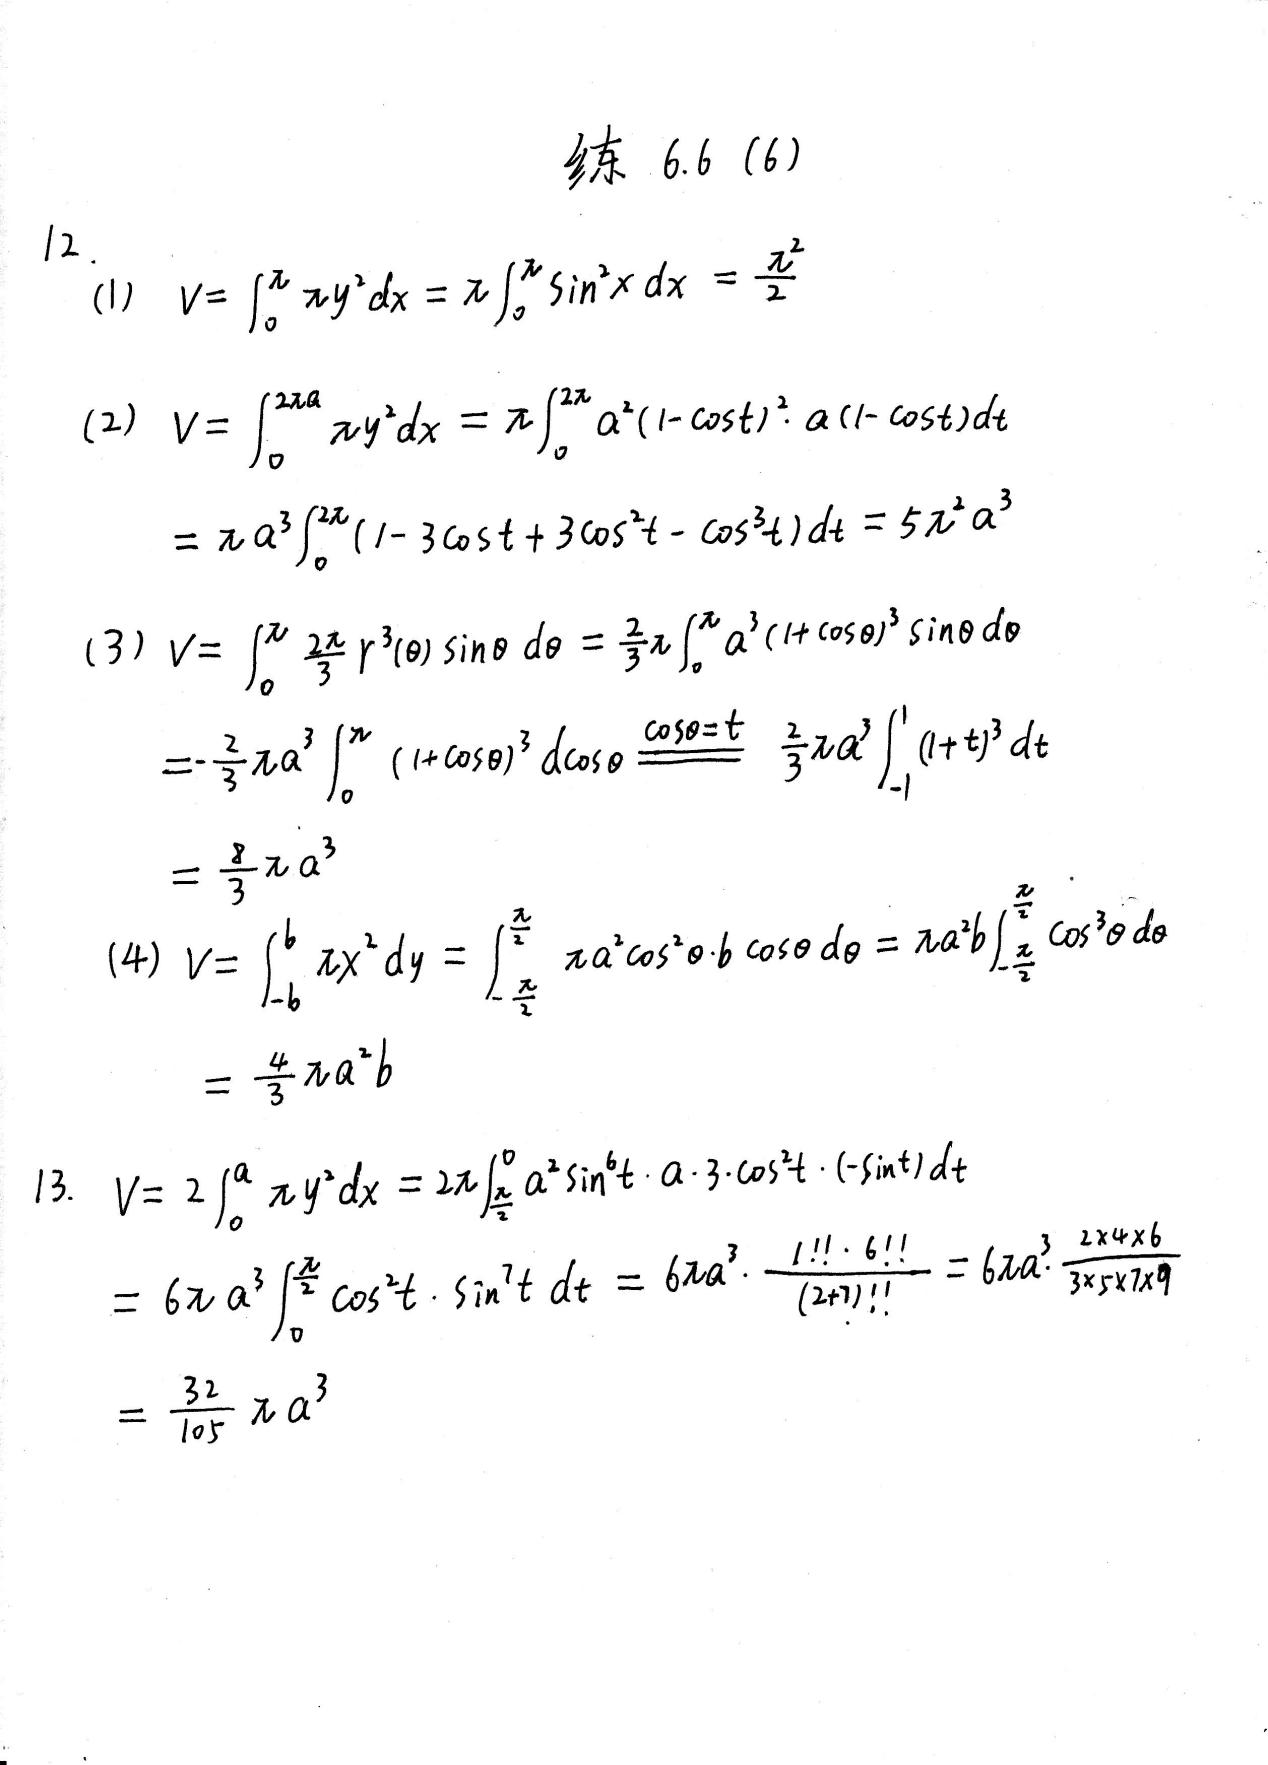 练 6.6 (6)
12.
(1) V = ∫₀^π πy²dx = π∫₀^π sin²x dx = π²/2
(2) V = ∫₀^{2πa} πy²dx = π∫₀^{2π} a²(1-cost)²·a(1-cost)dt
= πa³∫₀^{2π}(1-3cost+3cos²t-cos³t)dt = 5π²a³
(3) V = ∫₀^π 2π/3 r³(θ) sinθ dθ = 2/3 π∫₀^π a³(1+cosθ)³ sinθ dθ
= -2/3 πa³ ∫₀^π (1+cosθ)³ dcosθ ==(cosθ=t)== 2/3 πa³ ∫₋₁^1 (1+t)³ dt
= 8/3 πa³
(4) V = ∫₋b^b πx²dy = ∫_{-π/2}^{π/2} πa²cos²θ·b cosθ dθ = πa²b∫_{-π/2}^{π/2} cos³θ dθ
= 4/3 πa²b
13. V = 2∫₀^a πy²dx = 2π∫_{π/2}^0 a²sin⁶t·a·3·cos²t·(-sint)dt
= 6πa³∫₀^{π/2} cos²t·sin⁷t dt = 6πa³·(1!!·6!!)/((2+7)!!) = 6πa³·(2×4×6)/(3×5×7×9)
= 32/105 πa³